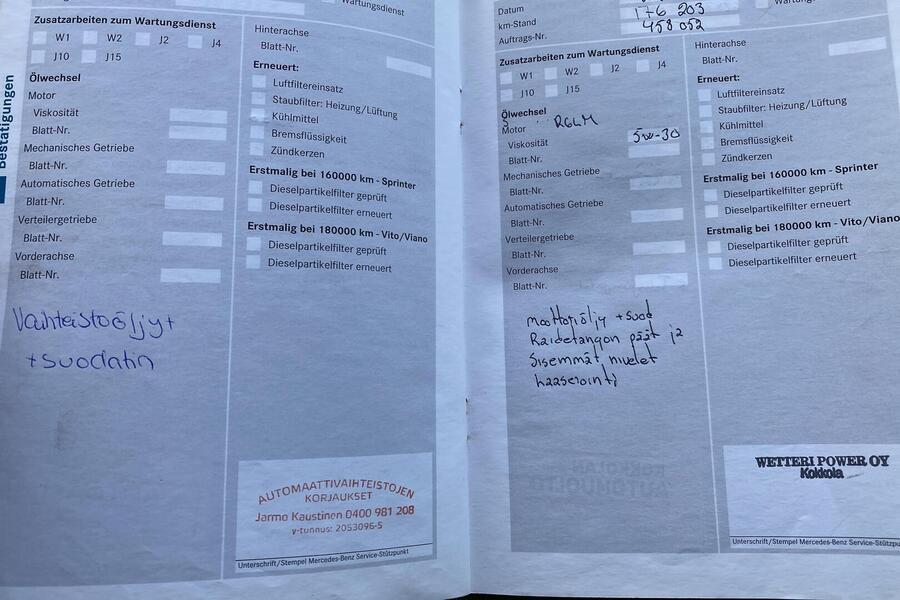 Wartungsdienst
Zusatzarbeiten zum Wartungsdienst
W1 W2 J2 J4
J10 J15
Ölwechsel
Motor
Viskosität
Blatt-Nr.
Mechanisches Getriebe
Blatt-Nr.
Automatisches Getriebe
Blatt-Nr.
Verteilergetriebe
Blatt-Nr.
Vorderachse
Blatt-Nr.
Vaihteistoöljyt
+suodatin
Bestätigungen
Hinterachse
Blatt-Nr.
Erneuert:
Luftfiltereinsatz
Staubfilter: Heizung/Lüftung
Kühlmittel
Bremsflüssigkeit
Zündkerzen
Erstmalig bei 160000 km - Sprinter
Dieselpartikelfilter geprüft
Dieselpartikelfilter erneuert
Erstmalig bei 180000 km - Vito/Viano
Dieselpartikelfilter geprüft
Dieselpartikelfilter erneuert
AUTOMAATTIVAIHTEISTOJEN
KORJAUKSET
Jarmo Kaustinen 0400 981 208
y-tunnus: 2053096-5
Unterschrift/Stempel Mercedes-Benz Service-Stützpunkt
Datum
km-Stand 176 203
Auftrags-Nr. 458 052
Zusatzarbeiten zum Wartungsdienst
W1 W2 J2 J4
J10 J15
Ölwechsel
Motor
Viskosität 5w-30
Blatt-Nr.
Mechanisches Getriebe
Blatt-Nr.
Automatisches Getriebe
Blatt-Nr.
Verteilergetriebe
Blatt-Nr.
Vorderachse
Blatt-Nr.
moottoriöljy +suod
Raidetangon päät ja
Sisemmät nivelet
haaserointi
Hinterachse
Blatt-Nr.
Erneuert:
Luftfiltereinsatz
Staubfilter: Heizung/Lüftung
Kühlmittel
Bremsflüssigkeit
Zündkerzen
Erstmalig bei 160000 km - Sprinter
Dieselpartikelfilter geprüft
Dieselpartikelfilter erneuert
Erstmalig bei 180000 km - Vito/Viano
Dieselpartikelfilter geprüft
Dieselpartikelfilter erneuert
WETTERI POWER OY
Kokkola
Unterschrift/Stempel Mercedes-Benz